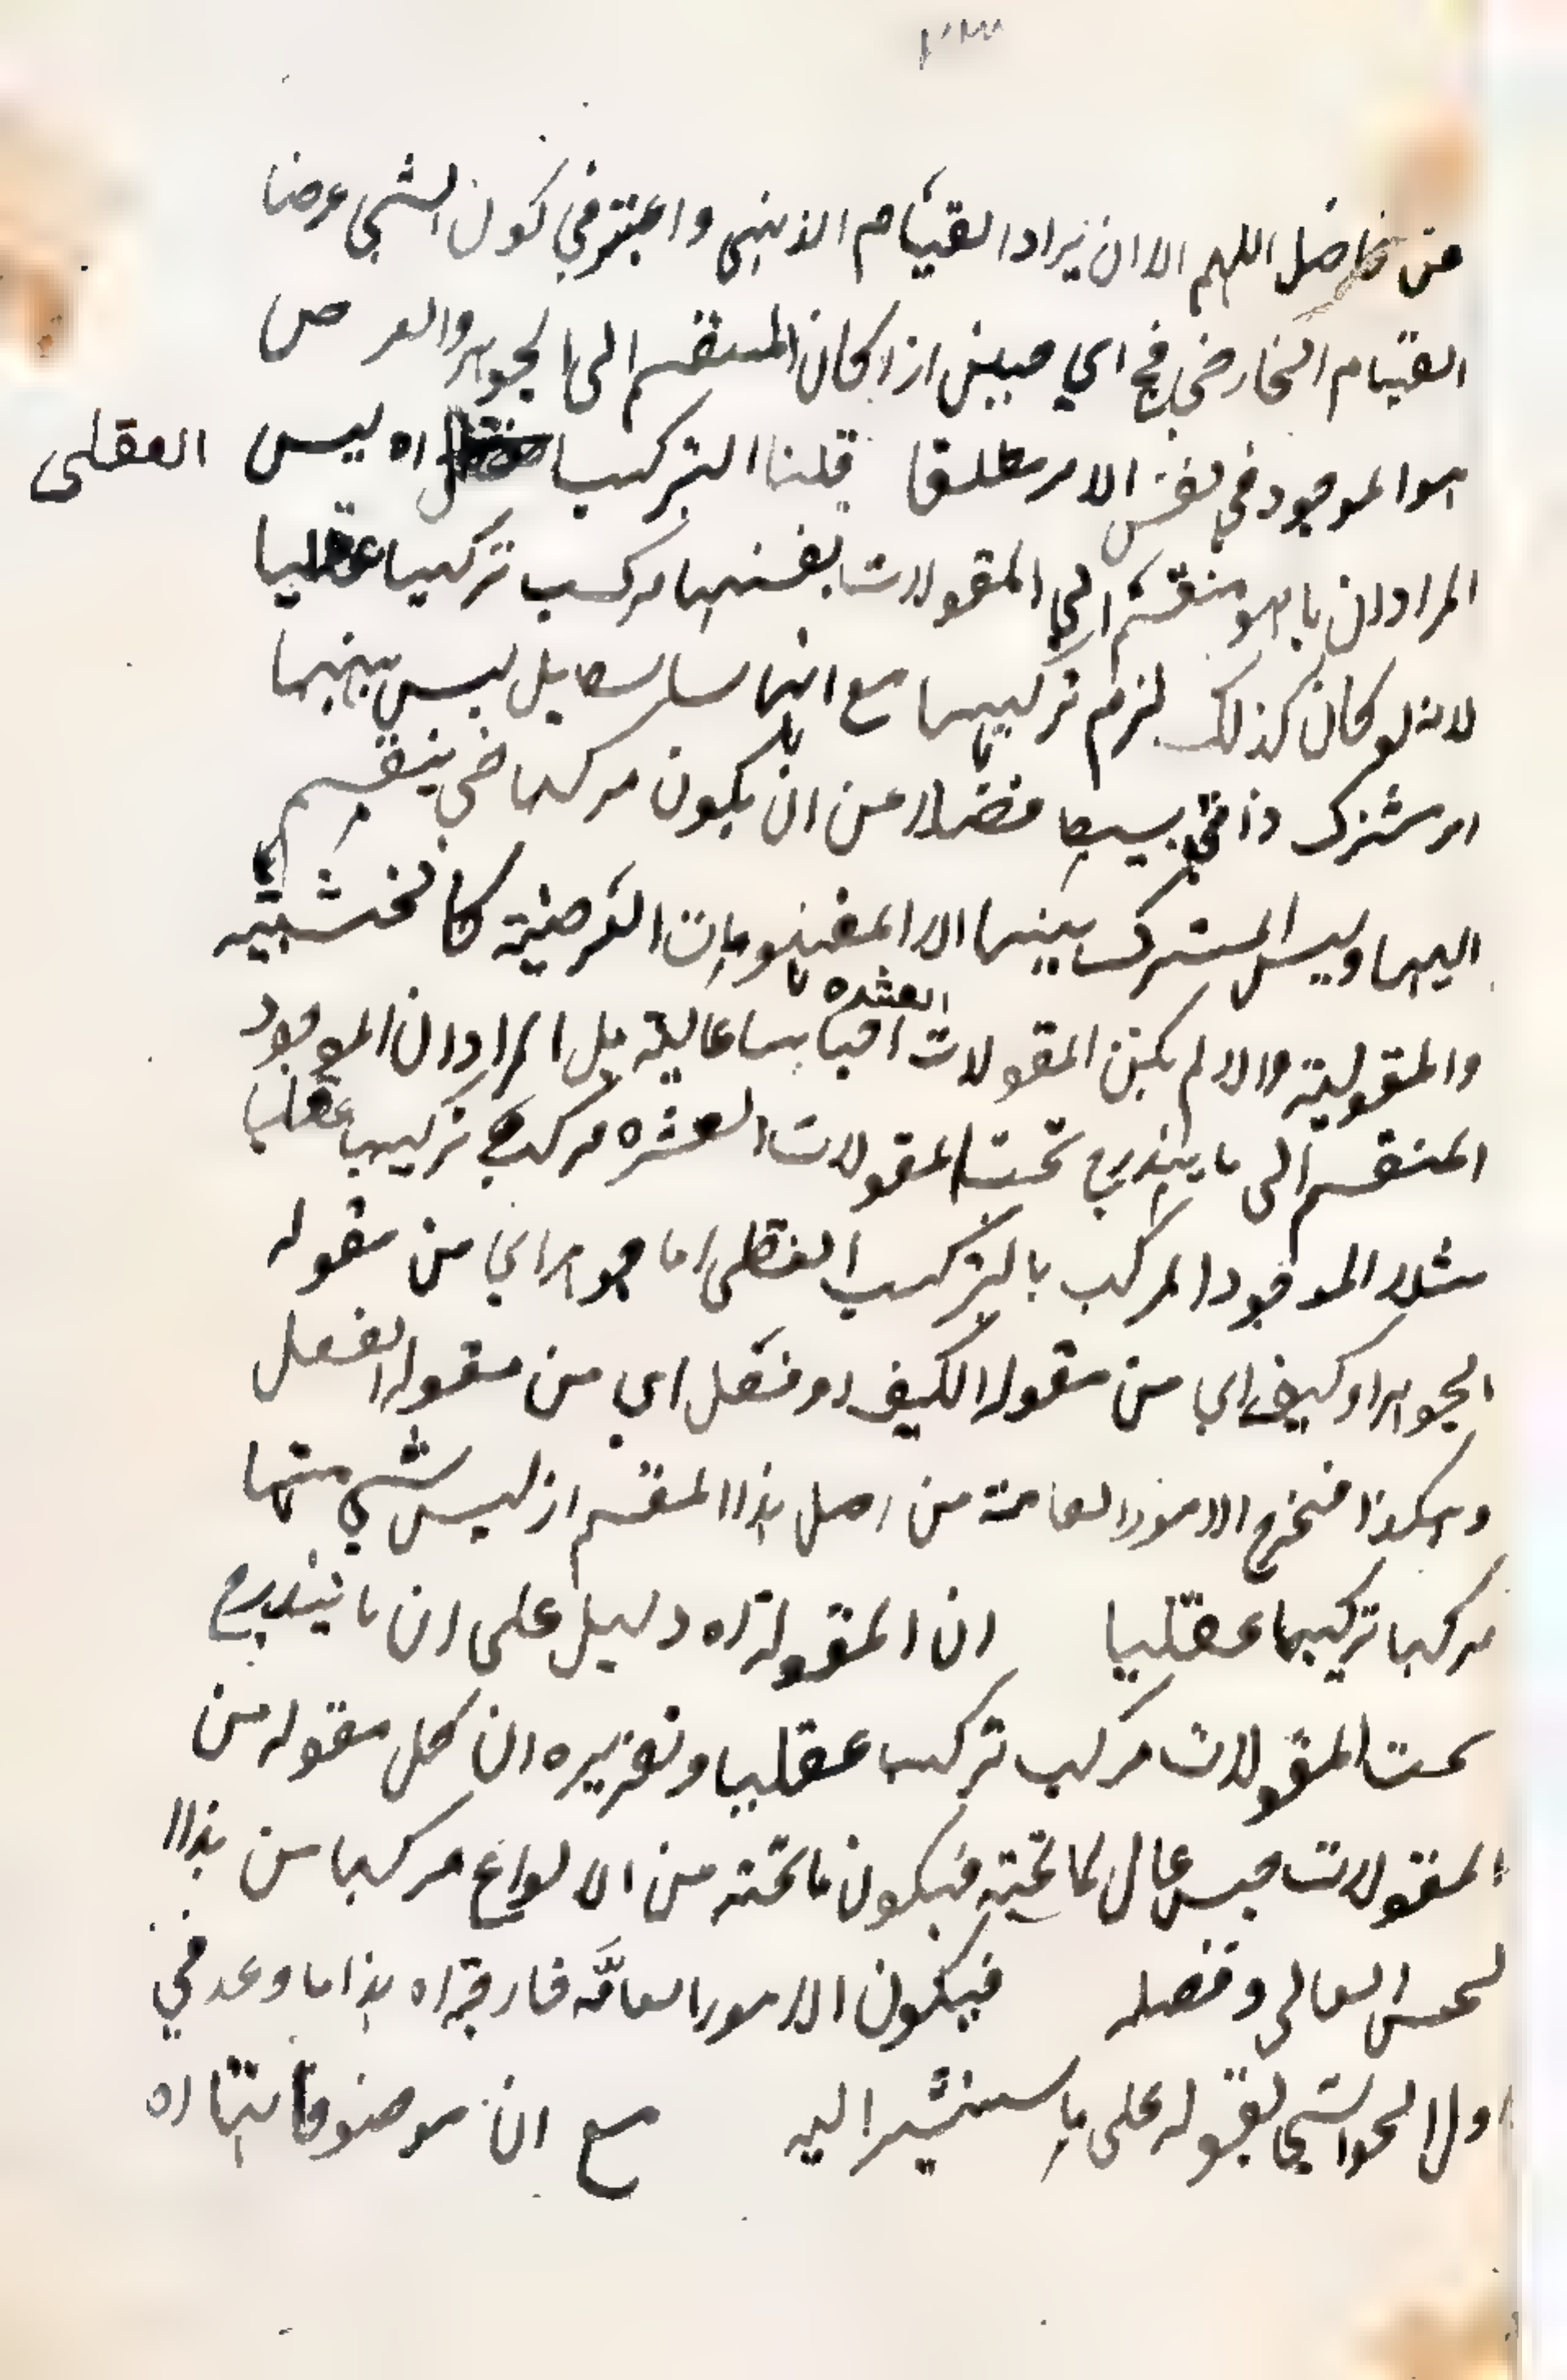 من فاضل اللهم الا ان يراد القيام الذهني واعتبر في كون الشي عرضا
القيام الخارجي فح اي مبنى اذا كان المنقسم الى الجوهر والعرض
هو الموجود في نفس الامر مطلقا قلنا التركيب اه ليس العقلى
المراد ان ما هو منقسم الى المقولات بنفسها مركب تركيبا عقليا
لانه لو كان كذلك لزم تركيبها مع انها بسائط بل ليس بينهما
امر مشترك ذاتي بسيط فضلا عن ان يكون مركبا حتى ينقسم
اليهما وليس المشترك بينهما الا المفهومات العرضية كالشيئية
والمقولية والا لم يكن المقولات العشره اجناسا عالية بل المراد ان الموجود
المنقسم الى ما يندرج تحت المقولات العشره مركب تركيبا عقليا
مثلا الموجود المركب بالتركيب العقلى اما جوهر اي من مقولة
الجوهر او كيف اي من مقولة الكيف او فعل اي من مقولة الفعل
وهكذا فتخرج الامور العامة من اصل هذا المقسم اذ ليس شي منها
مركبا تركيبا عقليا ان المقولة اه دليل على ان ما يندرج
تحت المقولات مركب تركيبا عقليا وتقريره ان كل مقولة من
المقولات جنس عال لما تحته فيكون ما تحته من الانواع مركبا من هذا
الجنس العالى وفصله فيكون الامور العامة خارجة اه هذا ما وعد في
اول الحواشي بقوله على ما سنشير اليه مع ان موضوعاتها اه